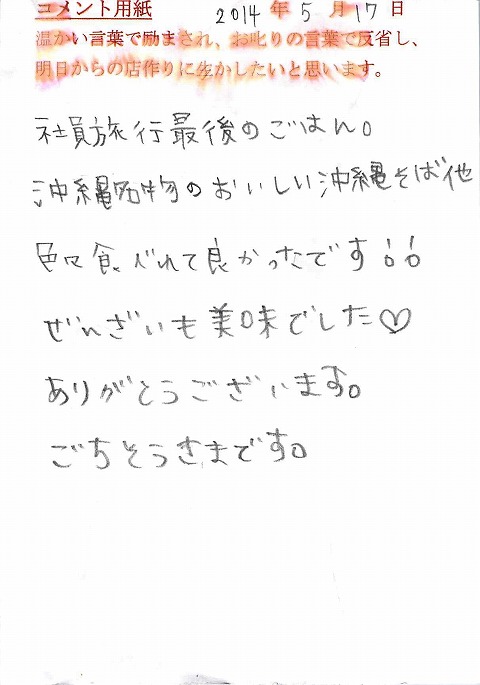 コメント用紙 2014年5月17日
温かい言葉で励まされ、お叱りの言葉で反省し、
明日からの店作りに生かしたいと思います。
社員旅行最後のごはん。
沖縄名物のおいしい沖縄そば他
色々食べれて良かったです!!
ぜんざいも美味でした♡
ありがとうございます。
ごちそうさまです。